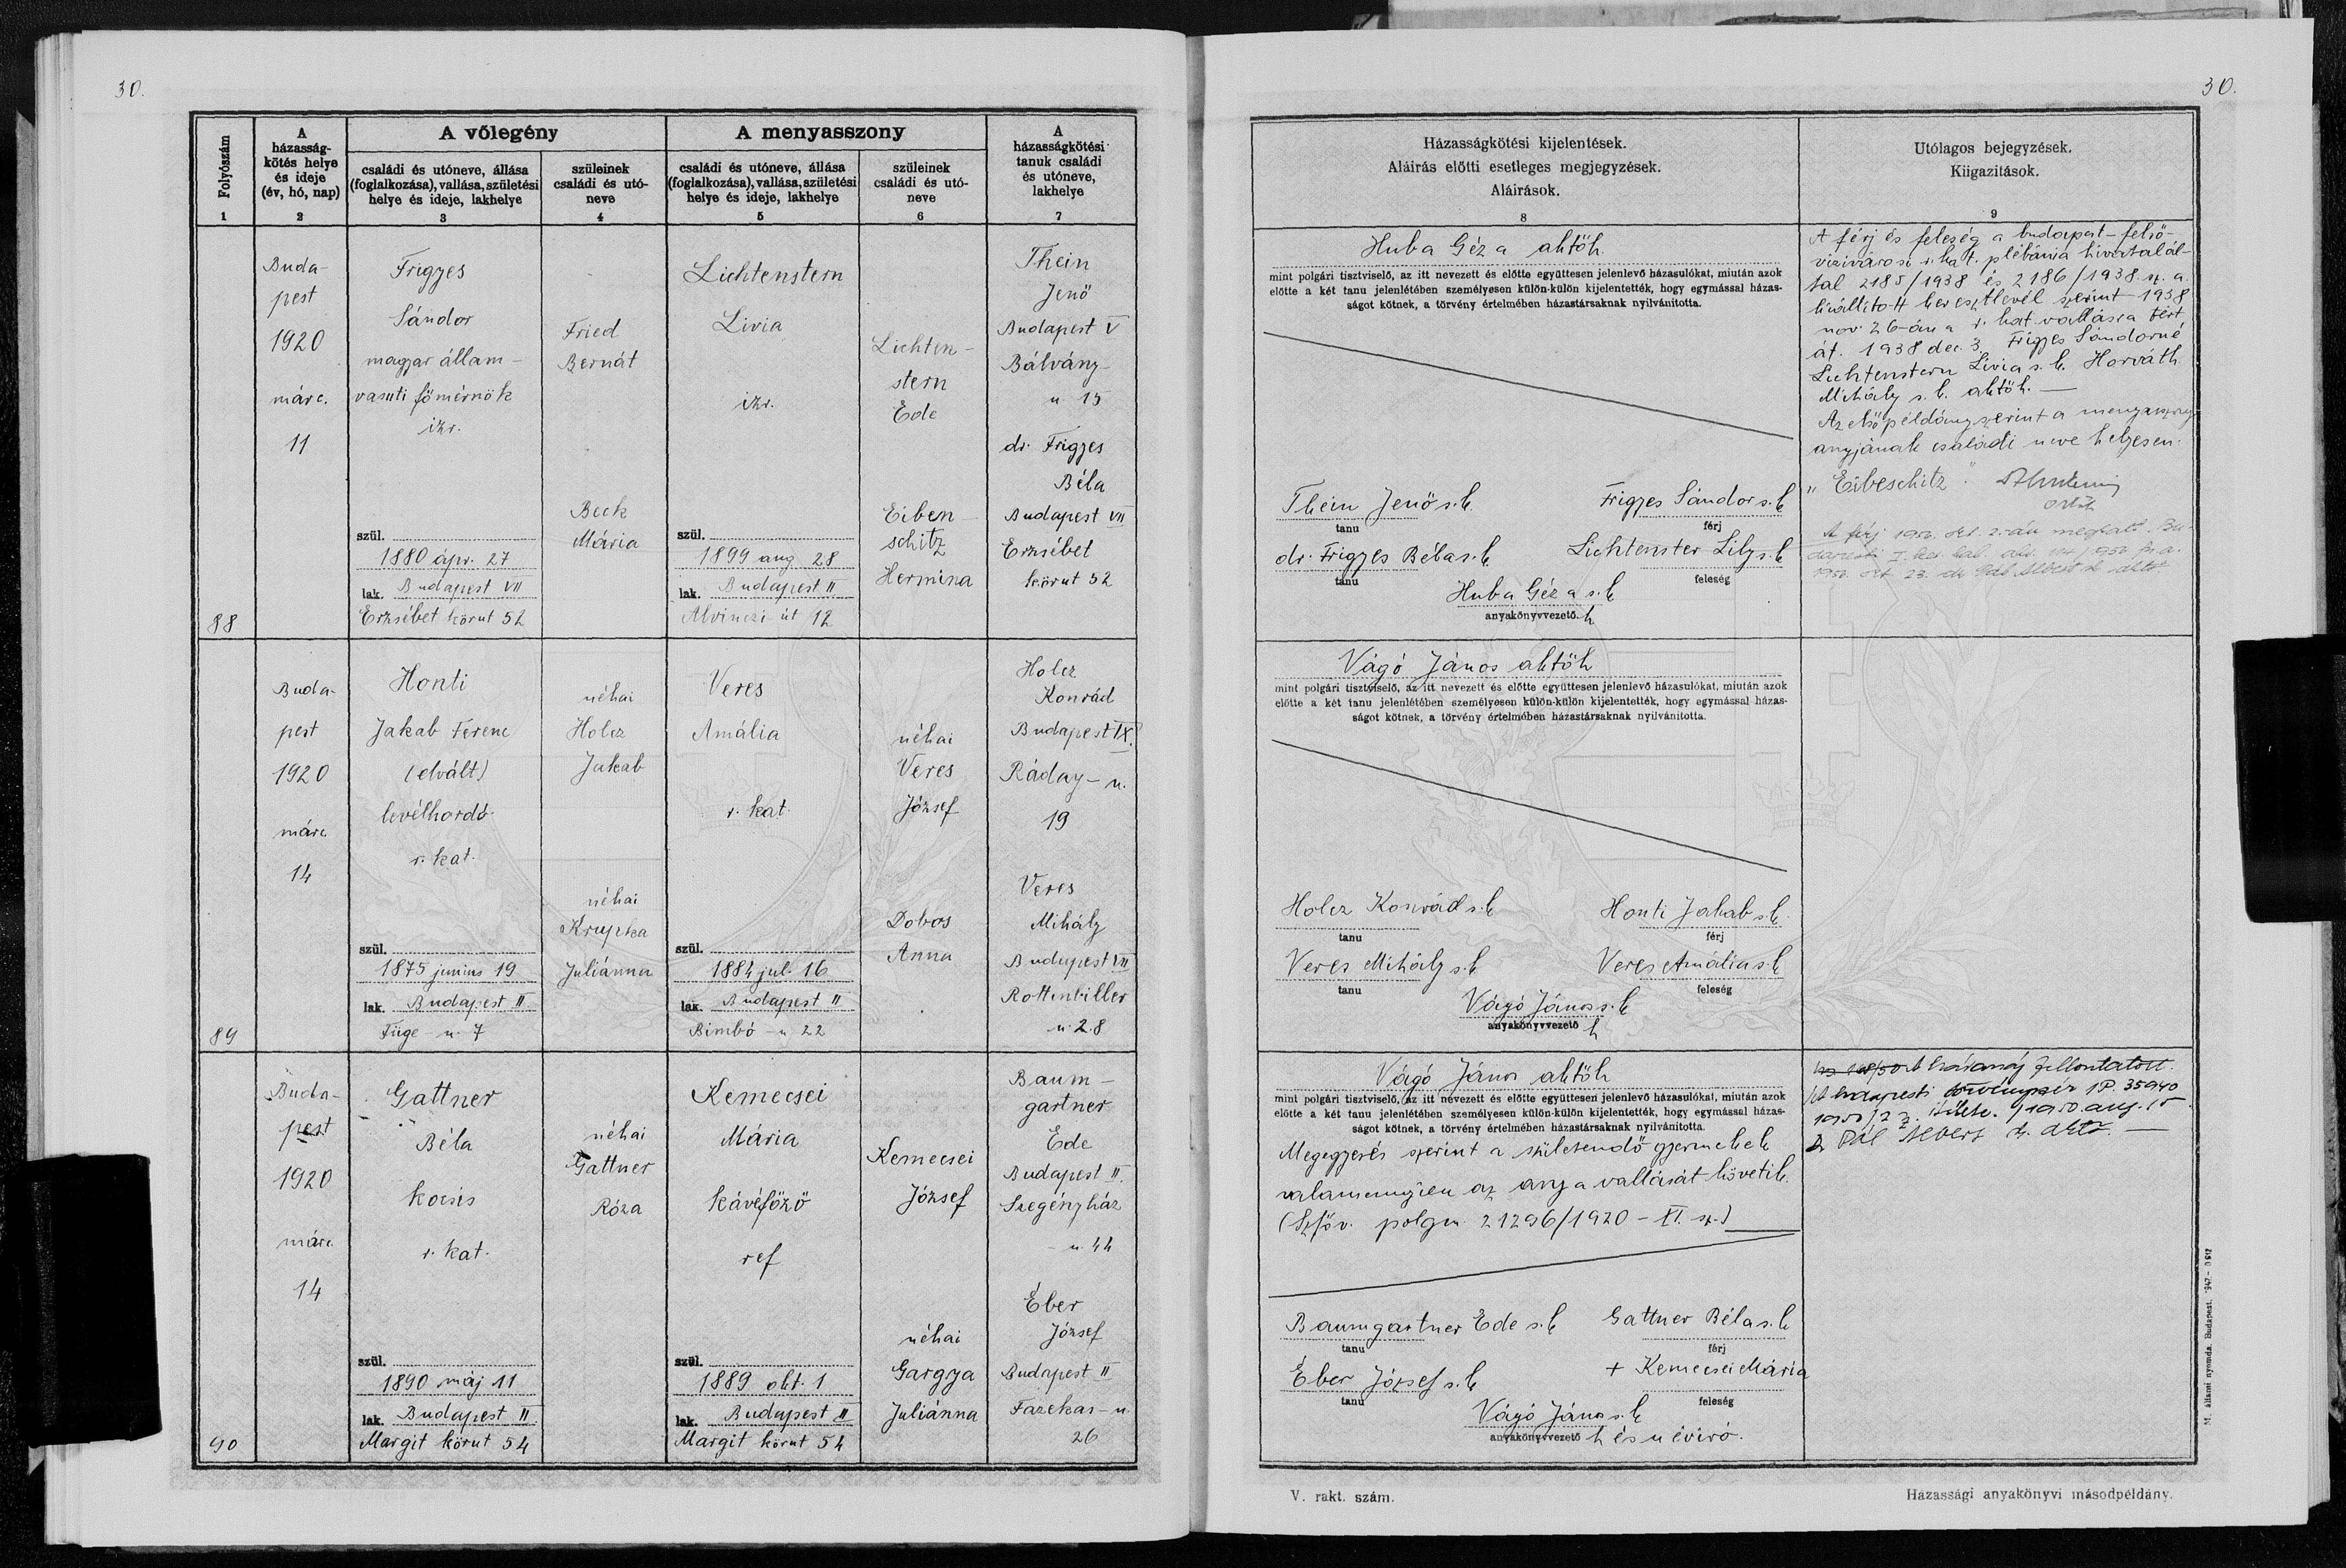 30.
Folyószám
A házasság-
kötés helye
és ideje
(év, hó, nap)
A vőlegény
családi és utóneve, állása
(foglalkozása), vallása, születési
helye és ideje, lakhelye
szüleinek
családi és utó-
neve
A menyasszony
családi és utóneve, állása
(foglalkozása), vallása, születési
helye és ideje, lakhelye
szüleinek
családi és utó-
neve
A
házasságkötési
tanuk családi
és utóneve,
lakhelye
1 2 3 4 5 6 7
88
Buda-
pest
1920
márc.
11
Frigyes
Sándor
magyar állam-
vasuti főmérnök
izr.
szül.
1880 ápr. 27
lak. Budapest VII
Erzsébet körut 52
Fried
Bernát
Beck
Mária
Lichtenstern
Livia
izr.
szül.
1899 aug 28
lak. Budapest II
Alvinczi út 12
Lichten-
stern
Ede
Eiben-
schitz
Hermina
Thein
Jenő
Budapest V
Bálvány-
u 15
dr. Frigyes
Béla
Budapest VII
Erzsébet
körut 52
89
Buda-
pest
1920
márc
14
Honti
Jakab Ferenc
(elvált)
levélhordó
r. kat.
szül.
1875 junius 19
lak. Budapest II.
Füge-u. 7
néhai
Holcz
Jakab
néhai
Krupka
Juliánna
Veres
Amália
r. kat.
szül.
1884 jul. 16
lak. Budapest II
Bimbó-u 22
néhai
Veres
József
Dobos
Anna
Holcz
Konrád
Budapest IX.
Ráday-u.
19
Veres
Mihály
Budapest VII
Rottenbiller
u. 28
90
Buda-
pest
1920
márc.
14
Gattner
Béla
kocsis
r. kat.
szül.
1890 máj 11
lak. Budapest II
Margit körut 54
néhai
Gattner
Róza
Kemecsei
Mária
kávéfőző
ref
szül.
1889 okt. 1
lak. Budapest II
Margit körut 54
Kemecsei
József
néhai
Gargya
Juliánna
Baum-
gartner
Ede
Budapest II.
Szegényház
-u. 44
Éber
József
Budapest II
Fazekas-u.
26
30.
Házasságkötési kijelentések.
Aláirás előtti esetleges megjegyzések.
Aláirások.
8
Utólagos bejegyzések.
Kiigazitások.
9
Huba Géza aktöh.
mint polgári tisztviselő, az itt nevezett és előtte együttesen jelenlevő házasulókat, miután azok
előtte a két tanu jelenlétében személyesen külön-külön kijelentették, hogy egymással házas-
ságot kötnek, a törvény értelmében házastársaknak nyilvánitotta.
Thein Jenő s.k.
tanu
Frigyes Sándor s.k
férj
dr. Frigyes Béla s.k
tanu
Lichtenster Lily s.k
feleség
Huba Géza s.k
anyakönyvvezető h
A férj és feleség a budapest-felső-
vizivárosi r. kat. plébánia hivatalál-
tal 2185/1938 és 2186/1938. sz. a.
kiállitott keresztlevél szerint 1938
nov. 26-án a r. kat vallásra tért
át. 1938 dec. 3 Frigyes Sándorné
Lichtenstern Livia s.k. Horváth
Mihály s.k. aktöh.
Az első példány szerint a menyasszony
anyjának családi neve helyesen
"Eibeschitz".
A férj 1950. 2-án meghalt.
Vágó János aktöh
mint polgári tisztviselő, az itt nevezett és előtte együttesen jelenlevő házasulókat, miután azok
előtte a két tanu jelenlétében személyesen külön-külön kijelentették, hogy egymással házas-
ságot kötnek, a törvény értelmében házastársaknak nyilvánitotta.
Holcz Konrád s.k
tanu
Honti Jakab s.k.
férj
Veres Mihály s.k
tanu
Veres Amália s.k
feleség
Vágó János s.k
anyakönyvvezető h
Vágó János aktöh
mint polgári tisztviselő, az itt nevezett és előtte együttesen jelenlevő házasulókat, miután azok
előtte a két tanu jelenlétében személyesen külön-külön kijelentették, hogy egymással házas-
ságot kötnek, a törvény értelmében házastársaknak nyilvánitotta.
Megegyezés szerint a születendő gyermekek
valamennyien az anya vallását követik.
(Szföv. polgm. 21296/1920-XI. sz.)
Baumgartner Ede s.k
tanu
Gattner Béla s.k
férj
Éber József s.k
tanu
+ Kemecsei Mária
feleség
Vágó János s.k
anyakönyvvezető h és névíró.
A házasság felbontatott.
A budapesti törvényszék 1P. 35940
1950/2 itélete. 1950. aug. 15.
Pál Albert
M. állami nyomda. Budapest.
V. rakt. szám.
Házassági anyakönyvi másodpéldány.